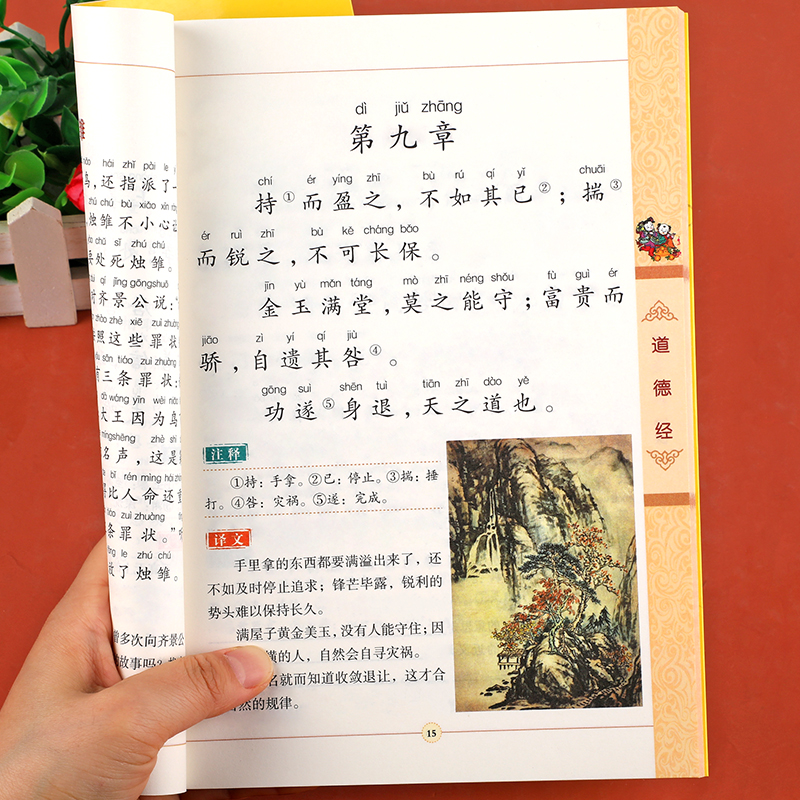 雏
hái zhǐ pài le
鸟，还指派了一
zhú chú bù xiǎo xīn
烛雏不小心
chǔ sǐ zhú chú
要处死烛雏。
qí jǐng gōng shuō
对齐景公说：“
zhào zhè xiē zuì zhuàng
照这些罪状
sān tiáo zuì zhuàng
有三条罪状：
dà wáng yīn wèi niǎo
大王因为鸟
míng shēng zhè shì
名声，这是
bǐ rén mìng hái
比人命还重
tiáo zuì zhuàng
条罪状。”
le zhú chú
放了烛雏。
曾多次向齐景公
故事吗？
dì jiǔ zhāng
第九章
chí ér yíng zhī bù rú qí yǐ chuāi
持①而盈之，不如其已②；揣③
ér ruì zhī bù kě cháng bǎo
而锐之，不可长保。
jīn yù mǎn táng mò zhī néng shǒu fù guì ér
金玉满堂，莫之能守；富贵而
jiāo zì yí qí jiù
骄，自遗其咎④。
gōng suì shēn tuì tiān zhī dào yě
功遂⑤身退，天之道也。
注释
①持：手拿。②已：停止。③揣：捶
打。④咎：灾祸。⑤遂：完成。
译文
手里拿的东西都要满溢出来了，还
不如及时停止追求；锋芒毕露，锐利的
势头难以保持长久。
满屋子黄金美玉，没有人能守住；因
横的人，自然会自寻灾祸。
名就而知道收敛退让，这才合
然的规律。
15
道德经